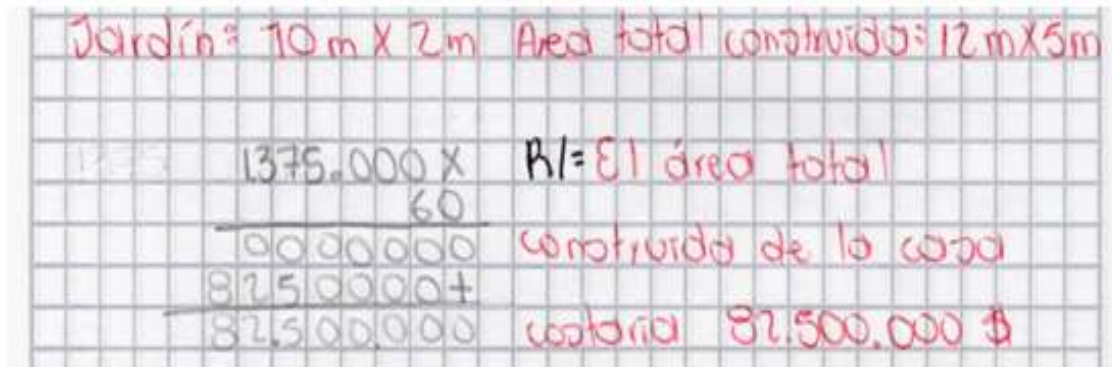 Jardín: 10 m X 2 m Area total construida: 12 m X 5 m
1375.000 X
60
0000000
8250000+
82.500.000
R/= El área total
construida de la casa
costaria 82.500.000 $